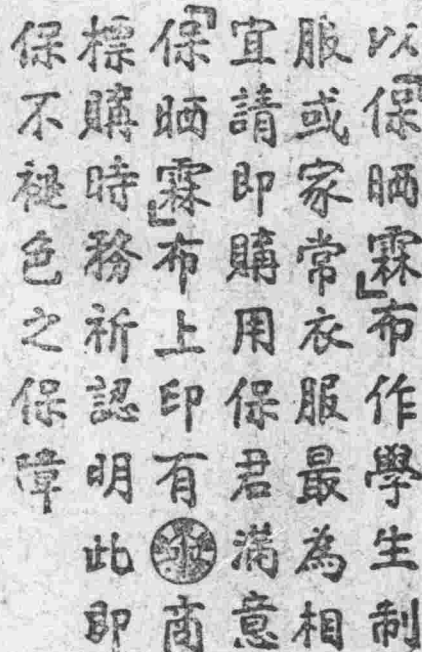 以「保晒霖」布作學生制
服或家常衣服最為相
宜請即購用保君滿意
「保晒霖」布上印有商
標購時務祈認明此即
保不褪色之保障